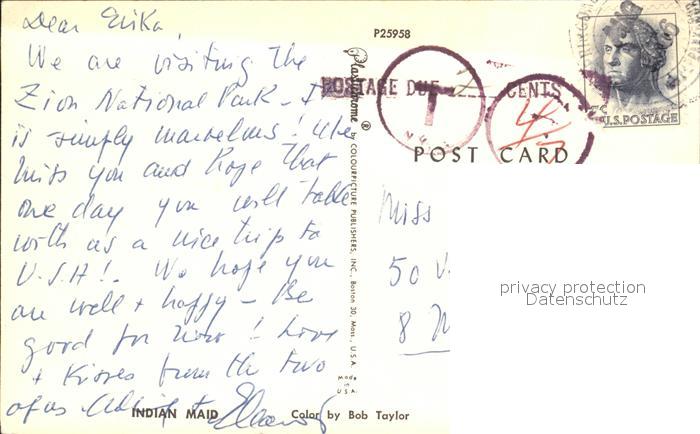 Dear Erika,
We are visiting the
Zion National Park - It
is simply marvelous! We
miss you and hope that
one day you will
with us a nice trip to
U.S.A! - We hope you
are well + happy - Be
good for now! Love
+ Kisses from the two
of us.
INDIAN MAID
Color by Bob Taylor
P25958
Plastichrome ®
by COLOURPICTURE PUBLISHERS, INC., Boston 30, Mass., U.S.A.
Made in U.S.A.
POSTAGE DUE CENTS
T
U.S. POSTAGE
POST CARD
Miss
50
8
privacy protection
Datenschutz